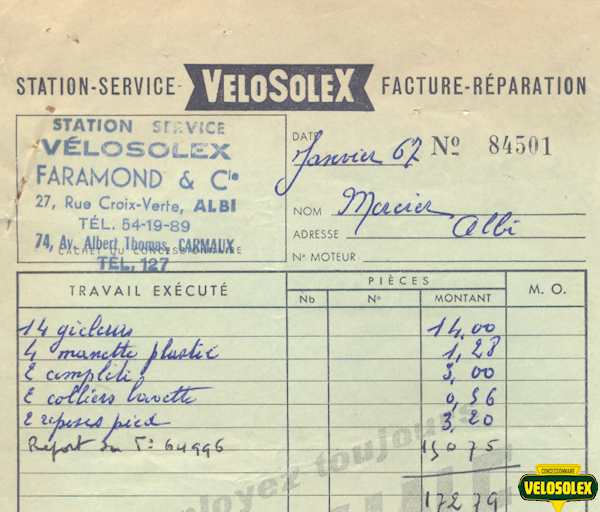 STATION-SERVICE- VELOSOLEX FACTURE-RÉPARATION
STATION SERVICE
VÉLOSOLEX
FARAMOND & Cie
27, Rue Croix-Verte, ALBI
TÉL. 54-19-89
74, Av. Albert Thomas, CARMAUX
CACHET DU CONCESSIONNAIRE
TEL. 127
DATE Janvier 67 No 84501
NOM Mercier
ADRESSE Albi
No MOTEUR
TRAVAIL EXÉCUTÉ PIÈCES M. O.
Nb No MONTANT
14 gicleurs 14,00
4 manette plastic 1,28
2 3,00
2 colliers 0,56
2 reposes pied 3,20
Report du 64996 150 75
ployez toujours
172 79
CONCESSIONNAIRE
VELOSOLEX